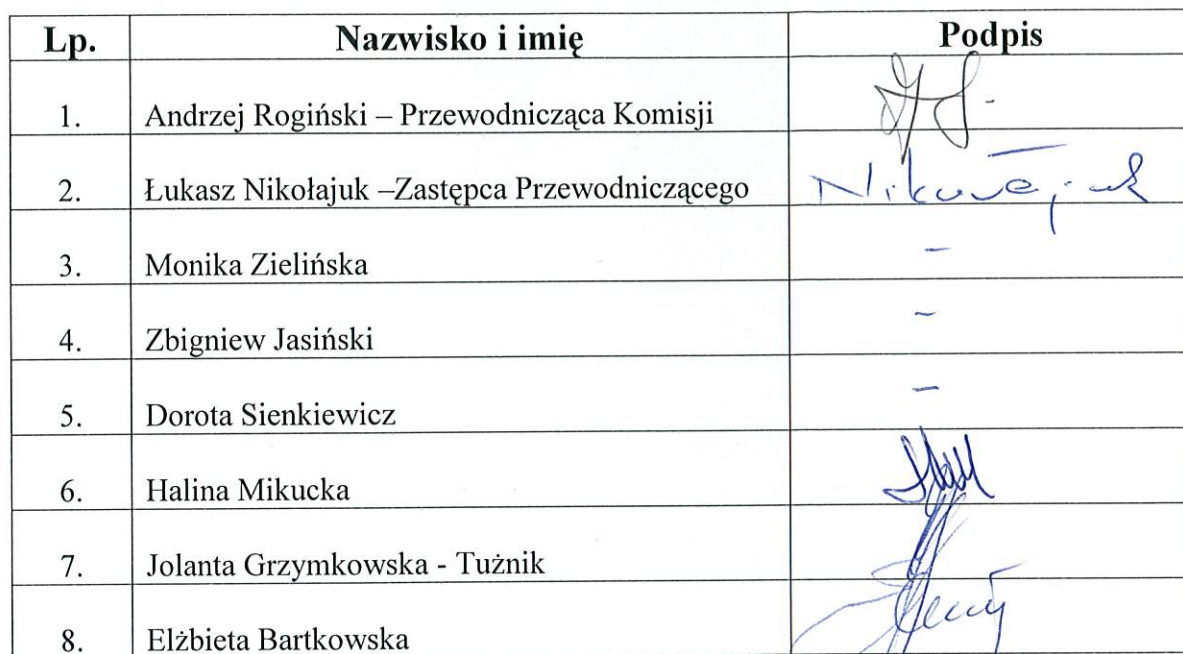 Lp. Nazwisko i imię Podpis
1. Andrzej Rogiński – Przewodnicząca Komisji
2. Łukasz Nikołajuk –Zastępca Przewodniczącego Nikołajuk
3. Monika Zielińska -
4. Zbigniew Jasiński -
5. Dorota Sienkiewicz -
6. Halina Mikucka
7. Jolanta Grzymkowska - Tużnik
8. Elżbieta Bartkowska